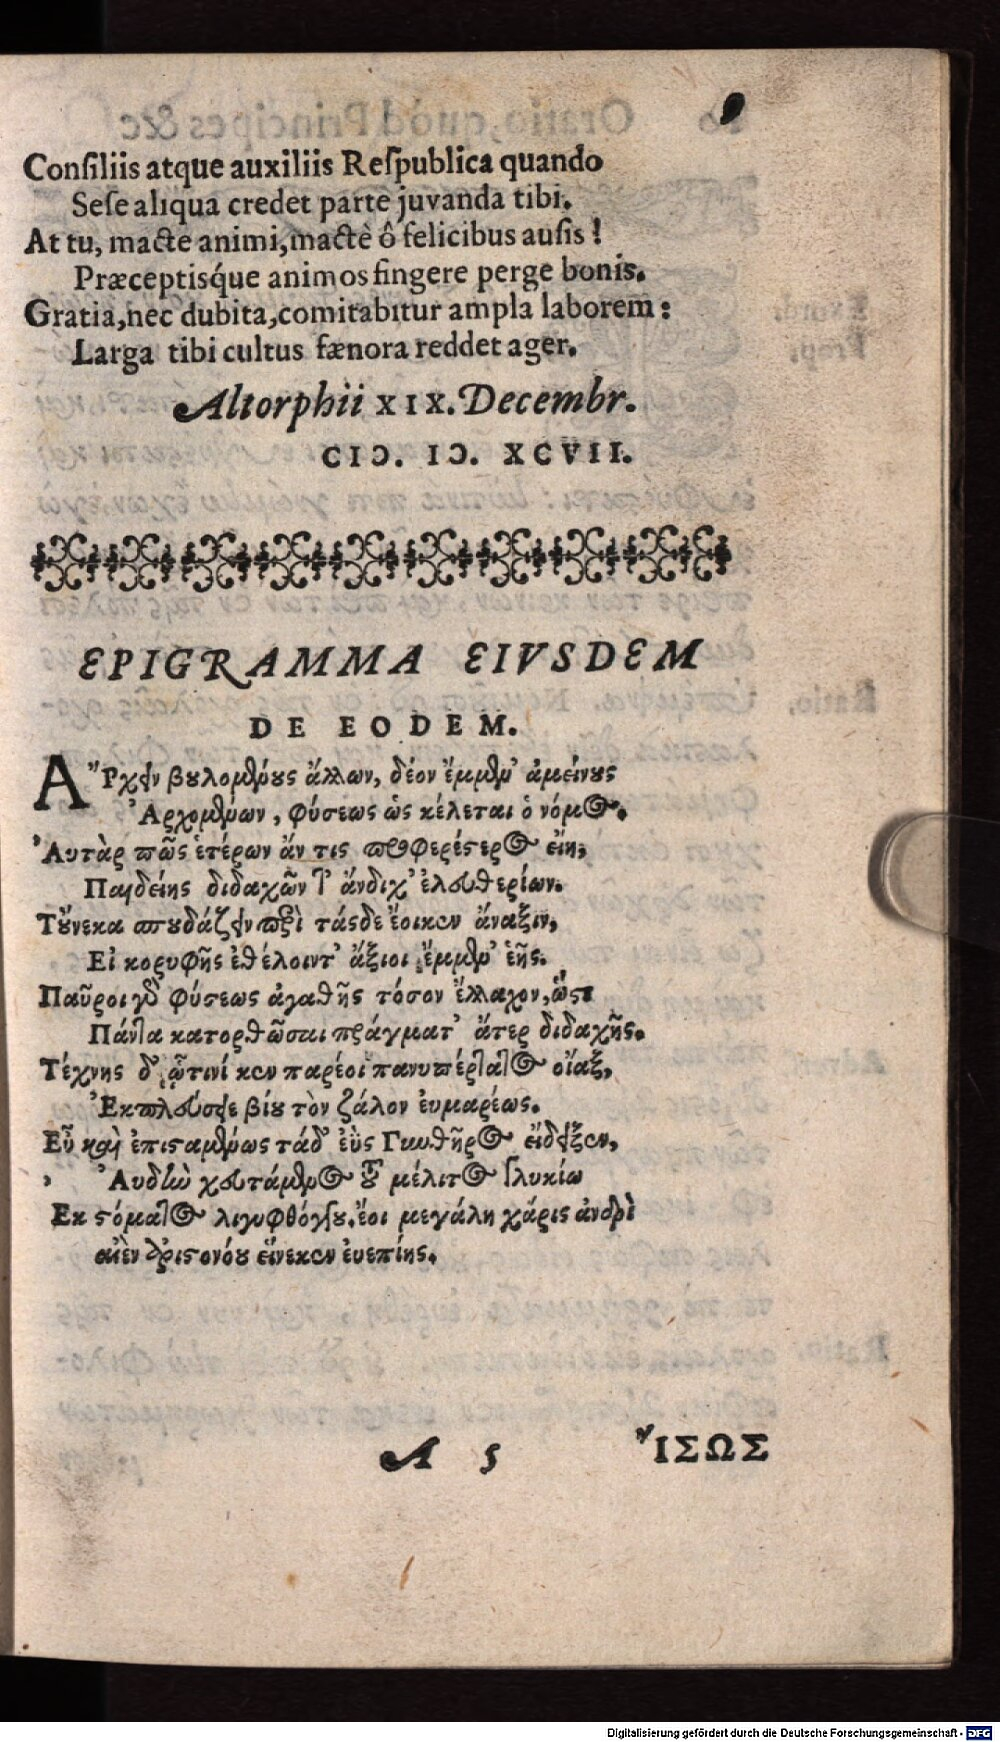 9
Conſiliis atque auxiliis Reſpublica quando
Seſe aliqua credet parte juvanda tibi.
At tu, macte animi, mactè ô felicibus auſis!
Præceptisq́ue animos fingere perge bonis.
Gratia, nec dubita, comitabitur ampla laborem:
Larga tibi cultus fænora reddet ager.
Altorphii XIX. Decembr.
CIↃ. IↃ. XCVII.
EPIGRAMMA EIVSDEM
DE EODEM.
Ἄρχειν βουλομένους ἄλλων, δέον ἔμμεν' ἀμείνους
Ἀρχομένων, φύσεως ὡς κέλεται ὁ νόμος.
Αὐτὰρ πῶς ἑτέρων ἄν τις προφερέστερος εἴη,
Παιδείης διδαχῶν τ' ἄνδιχ' ἐλευθερίων.
Τοὔνεκα σπουδάζειν περὶ τάσδε ἔοικεν ἄναξιν,
Εἰ κορυφῆς ἐθέλοιντ' ἄξιοι ἔμμεν' ἑῆς.
Παῦροι γὰρ φύσεως ἀγαθῆς τόσον ἔλλαχον, ὥστε
Πάντα κατορθῶσαι πράγματ' ἄτερ διδαχῆς.
Τέχνης δ' ᾧτινί κεν παρέοι πανυπέρτατος οἴαξ,
Ἐκπλεύσειε βίου τὸν ζάλον εὐμαρέως.
Εὖ καὶ ἐπισταμένως τάδ' ἐῢς
Αὐδὴν χευτάμενος τοῦ μέλιτος γλυκίω
Ἐκ στόματος λιγυφθόγγου. ἔοι μεγάλη χάρις ἀνδρὶ
αἰὲν ἀριστονόου εἵνεκεν εὐεπίης.
A 5 ἼΣΩΣ
Digitalisierung gefördert durch die Deutsche Forschungsgemeinschaft - DFG